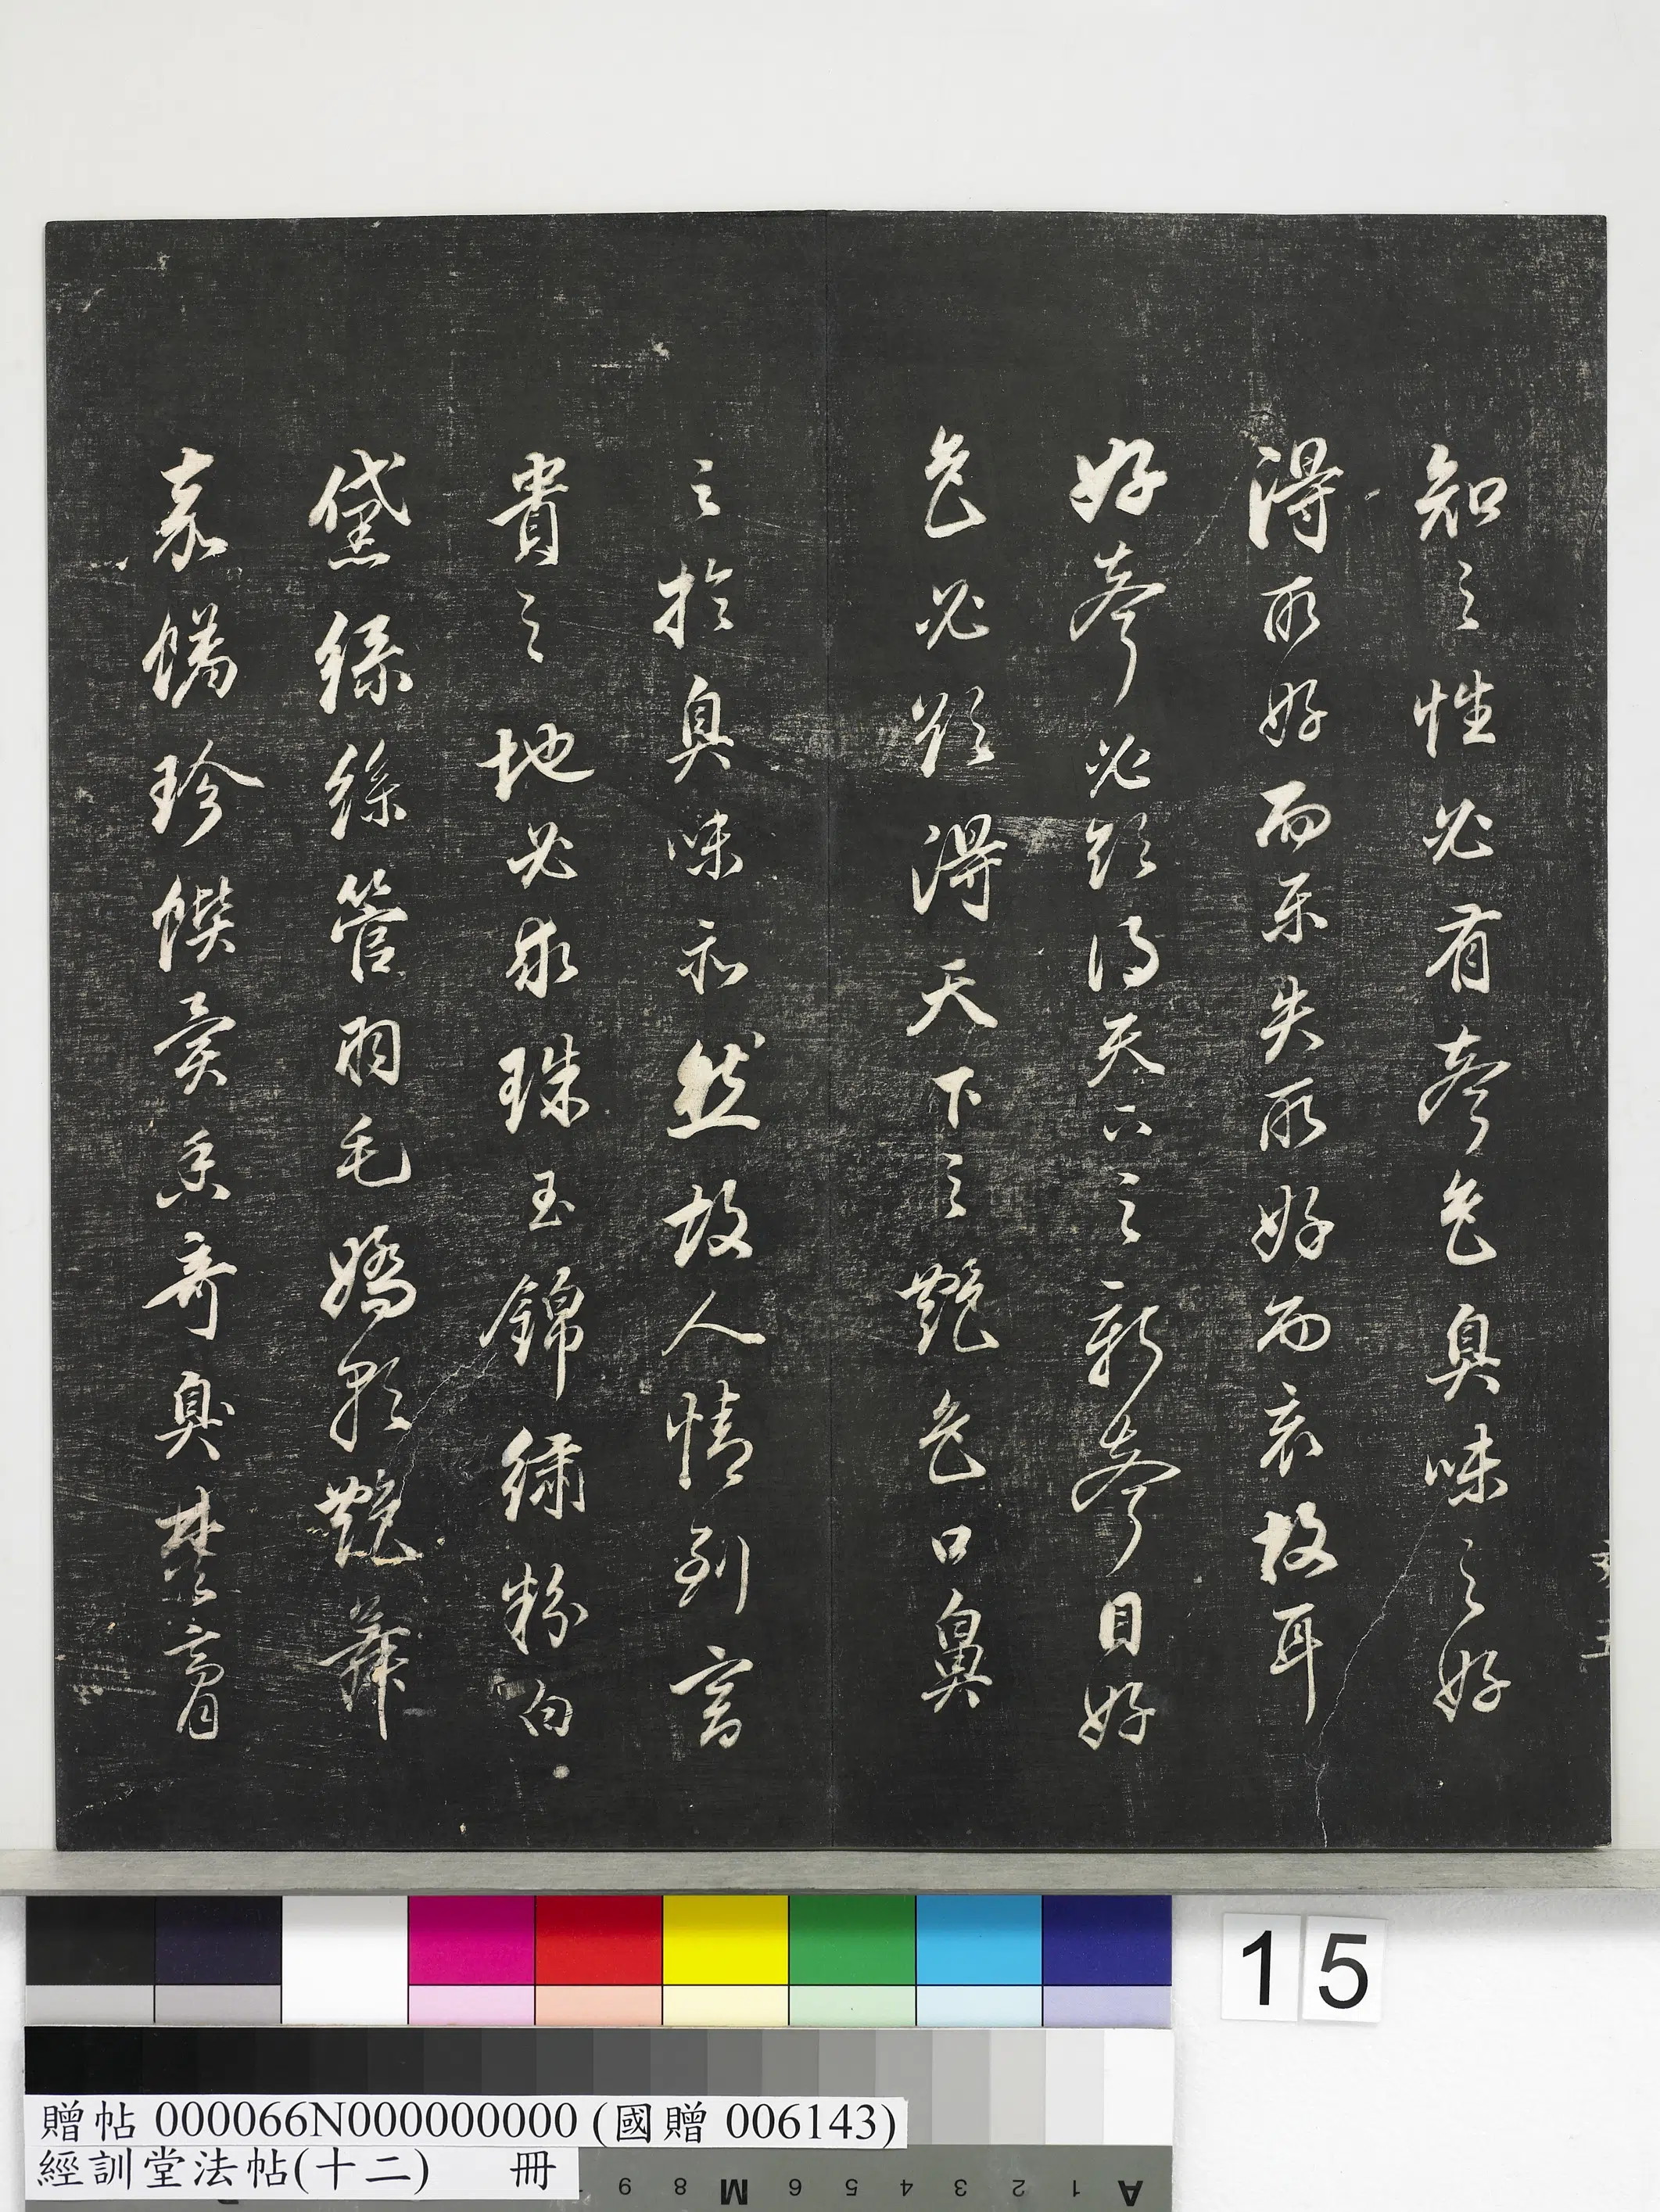 知之性必有聲色臭味之好
得所好而樂失所好而哀故耳
好聲必欲得天下之新聲目好
色必欲得天下之艷色口鼻
之於臭味亦然故人情到富
貴之地必求珠玉錦繡粉白
黛綠絲管羽毛嬌歌艷舞
嘉珍饌異香奇臭焚膏
15
贈帖 000066N000000000 (國贈 006143)
經訓堂法帖(十二) 冊
9 8 M 6 5 4 3 2 1 A